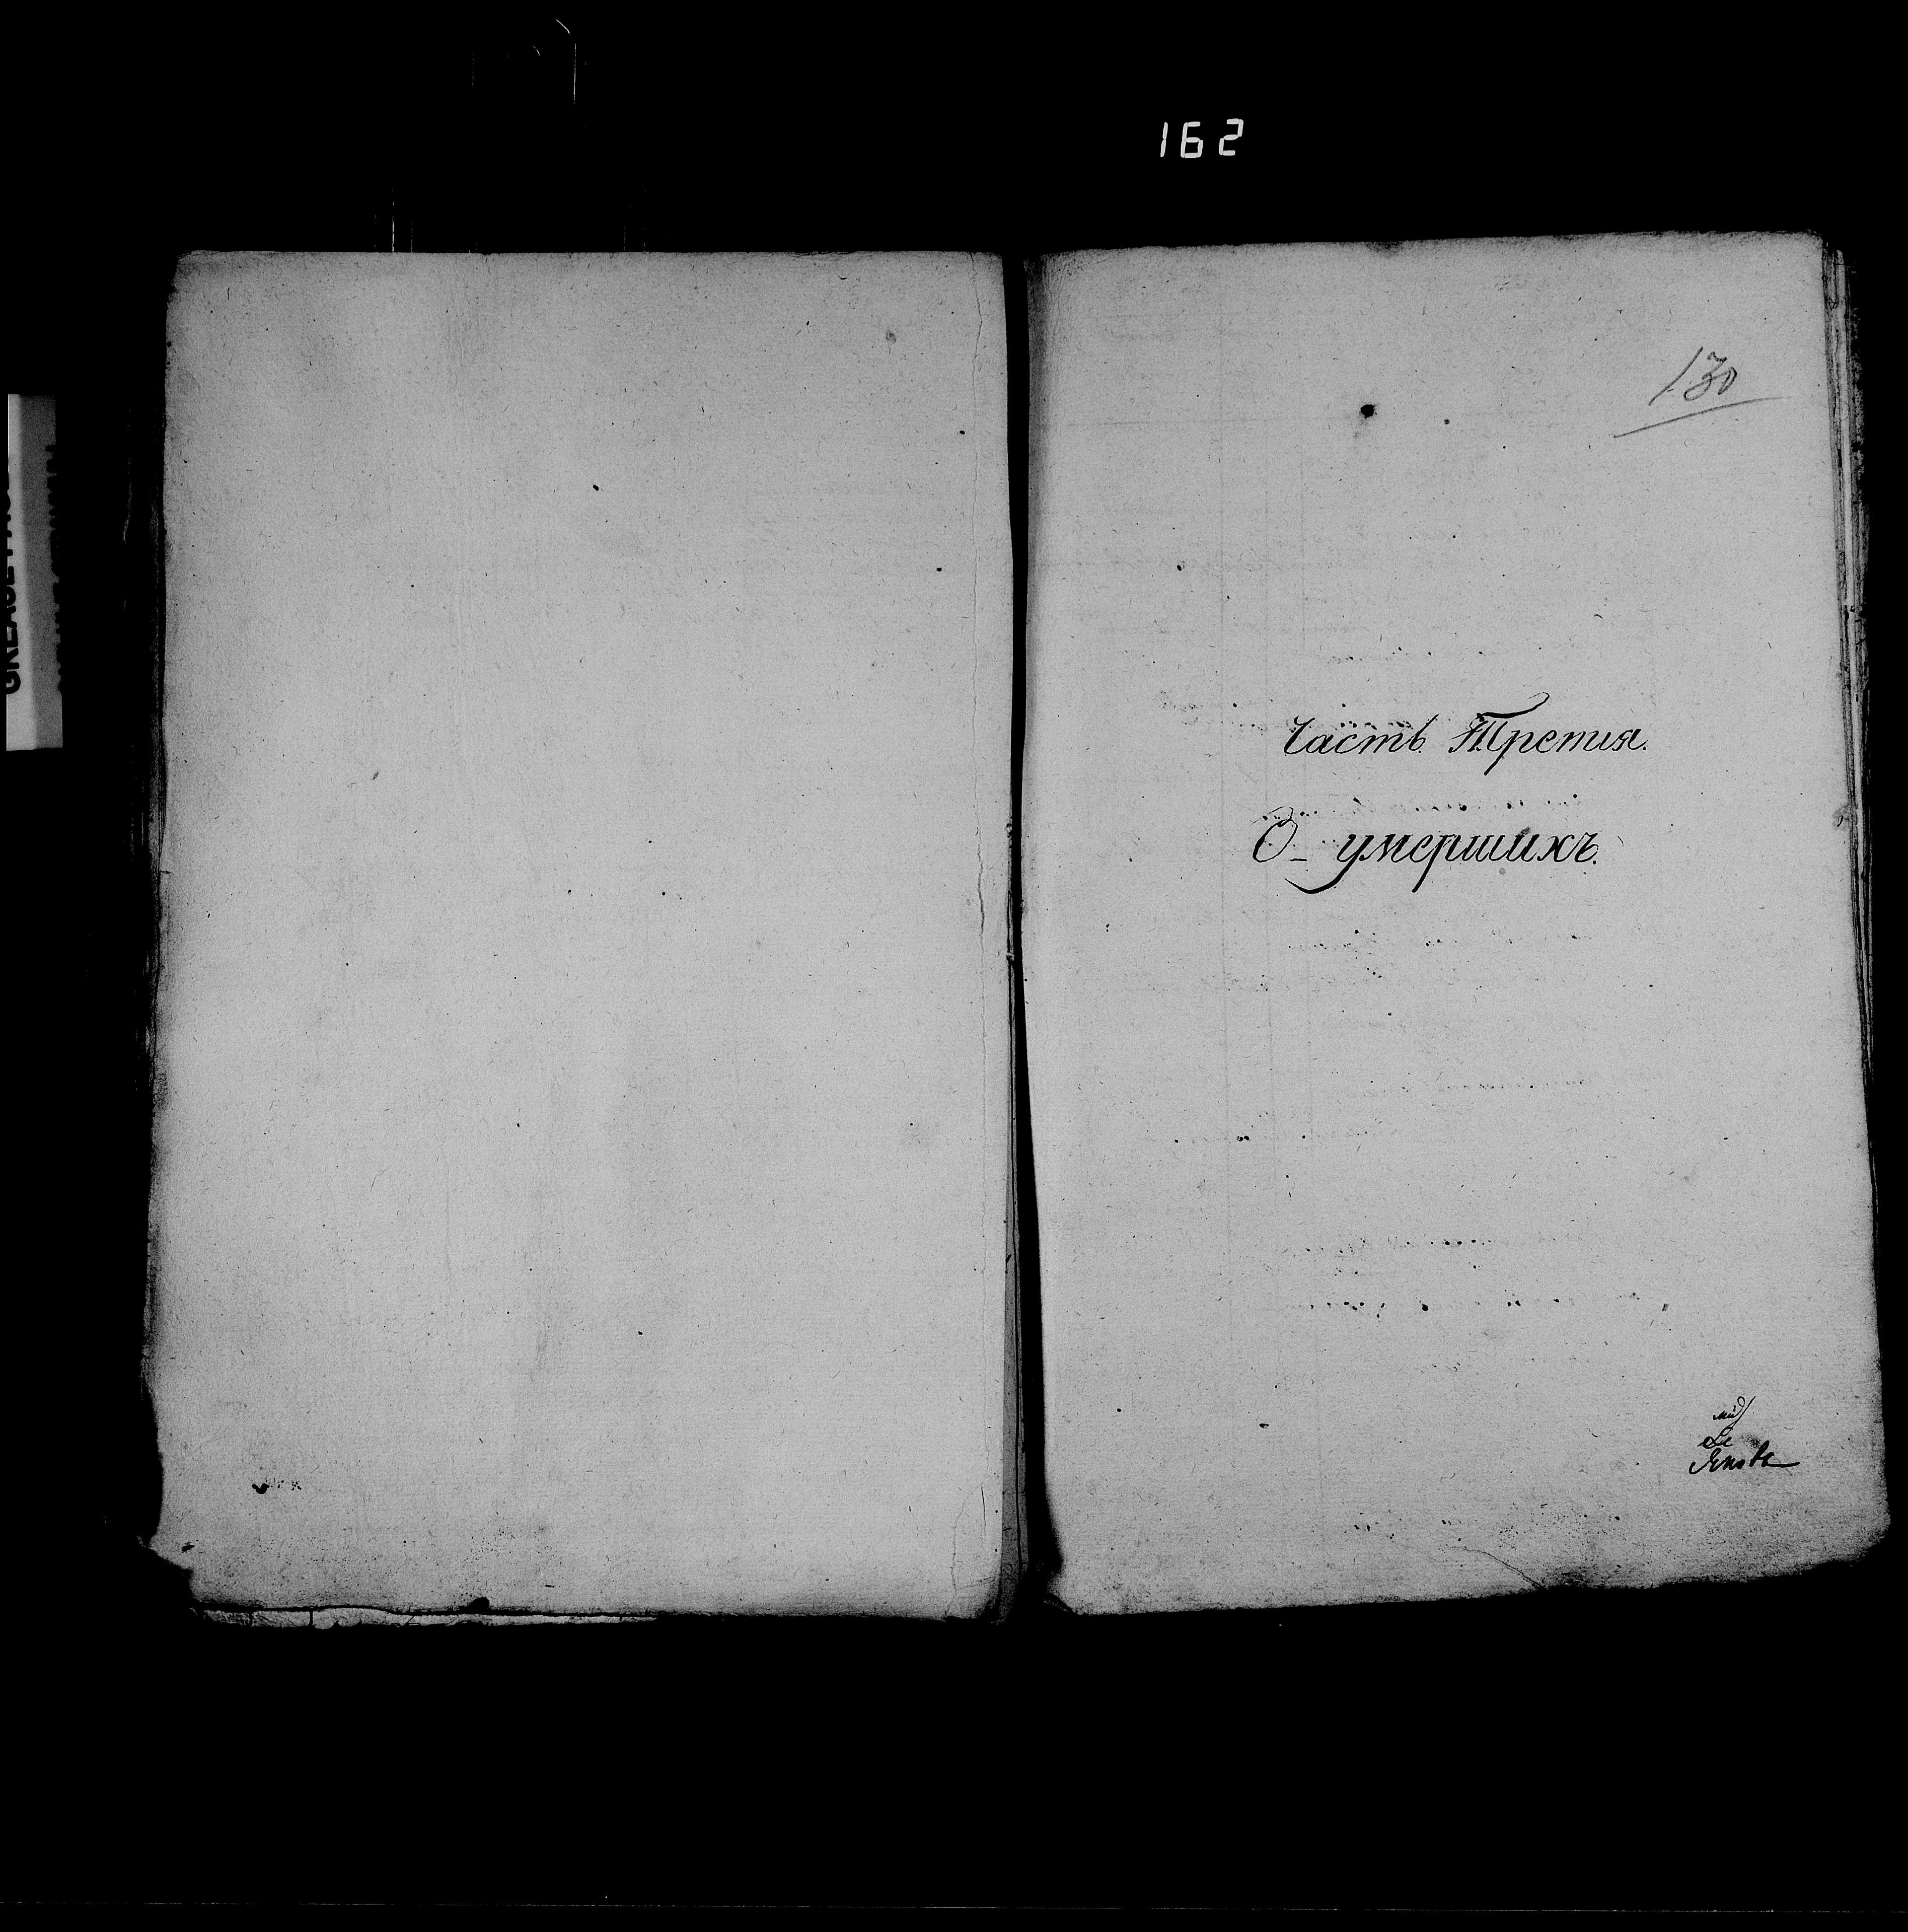 162
130
Часть Третия.
О умершихъ.